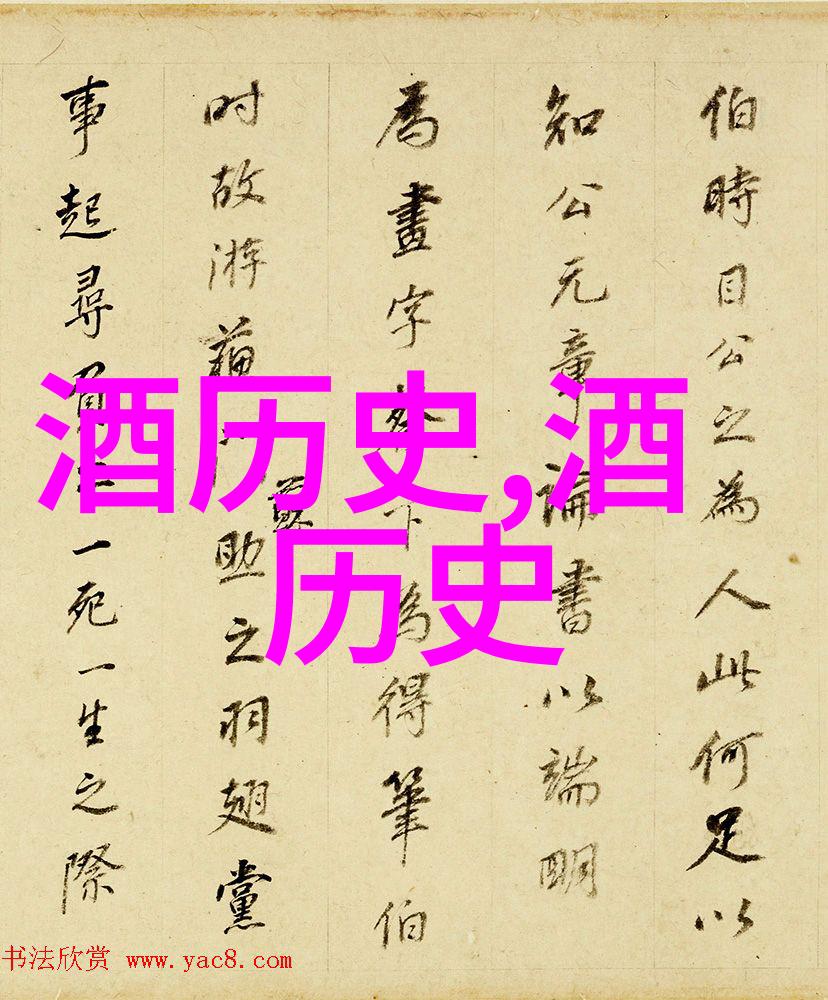 伯時目公之為人此何足以
知公元章論書以端明
為畫字下為得筆伯
时故游助之羽翅黨
事起尋一死一生之際
酒历史,酒
历史
书法欣赏 www.yac8.com